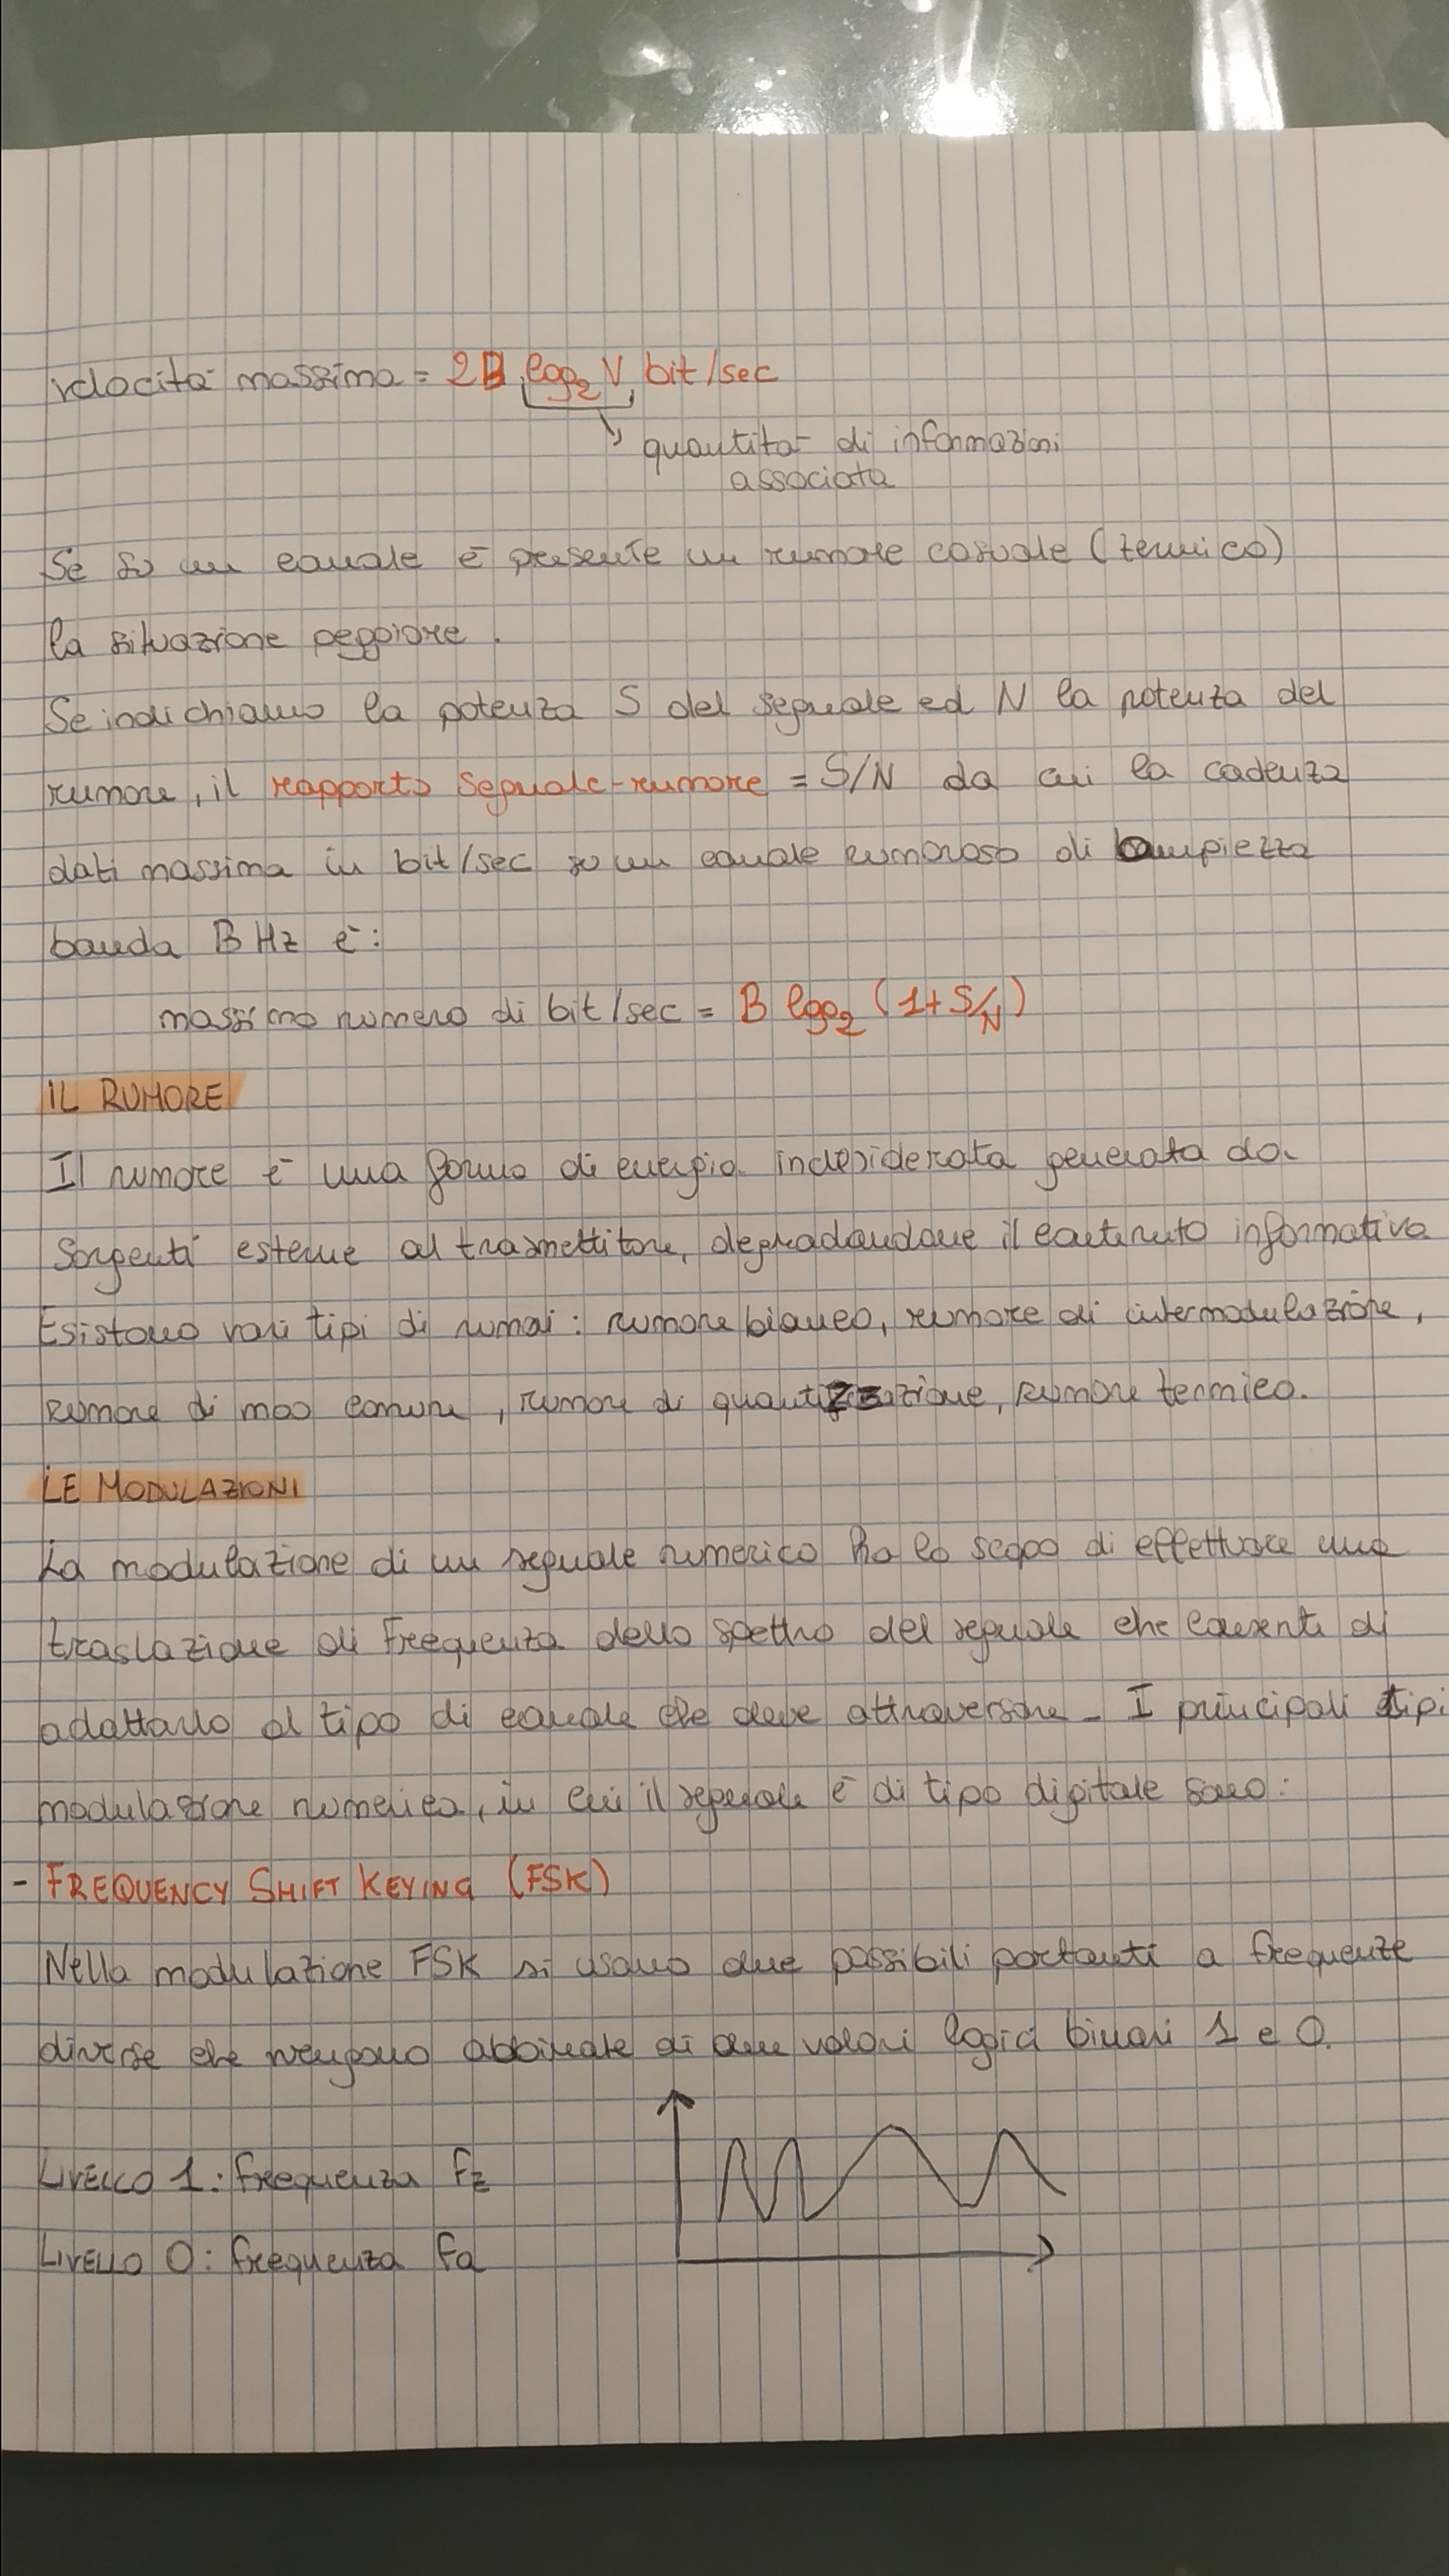 velocità massima = 2B log₂ V bit/sec
quantità di informazioni
associata
Se su un canale è presente un rumore casuale (termico)
la situazione peggiore.
Se indichiamo la potenza S del segnale ed N la potenza del
rumore, il rapporto segnale-rumore = S/N da cui la cadenza
dati massima in bit/sec su un canale rumoroso di ampiezza
banda B Hz è:
massimo numero di bit/sec = B log₂ (1+S/N)
IL RUMORE
Il rumore è una forma di energia indesiderata generata da
sorgenti esterne al trasmettitore, degradandone il contenuto informativo
Esistono vari tipi di rumori: rumore bianco, rumore di intermodulazione,
rumore di moo comune, rumore di quantizzazione, rumore termico.
LE MODULAZIONI
La modulazione di un segnale numerico ha lo scopo di effettuare una
traslazione di frequenza dello spettro del segnale che consente di
adattarlo al tipo di canale che deve attraversare. I principali tipi
modulazione numerica, in cui il segnale è di tipo digitale sono:
- FREQUENCY SHIFT KEYING (FSK)
Nella modulazione FSK si usano due possibili portanti a frequenze
diverse che vengono abbinate ai due valori logici binari 1 e 0.
LIVELLO 1: frequenza Fz
LIVELLO 0: frequenza Fa